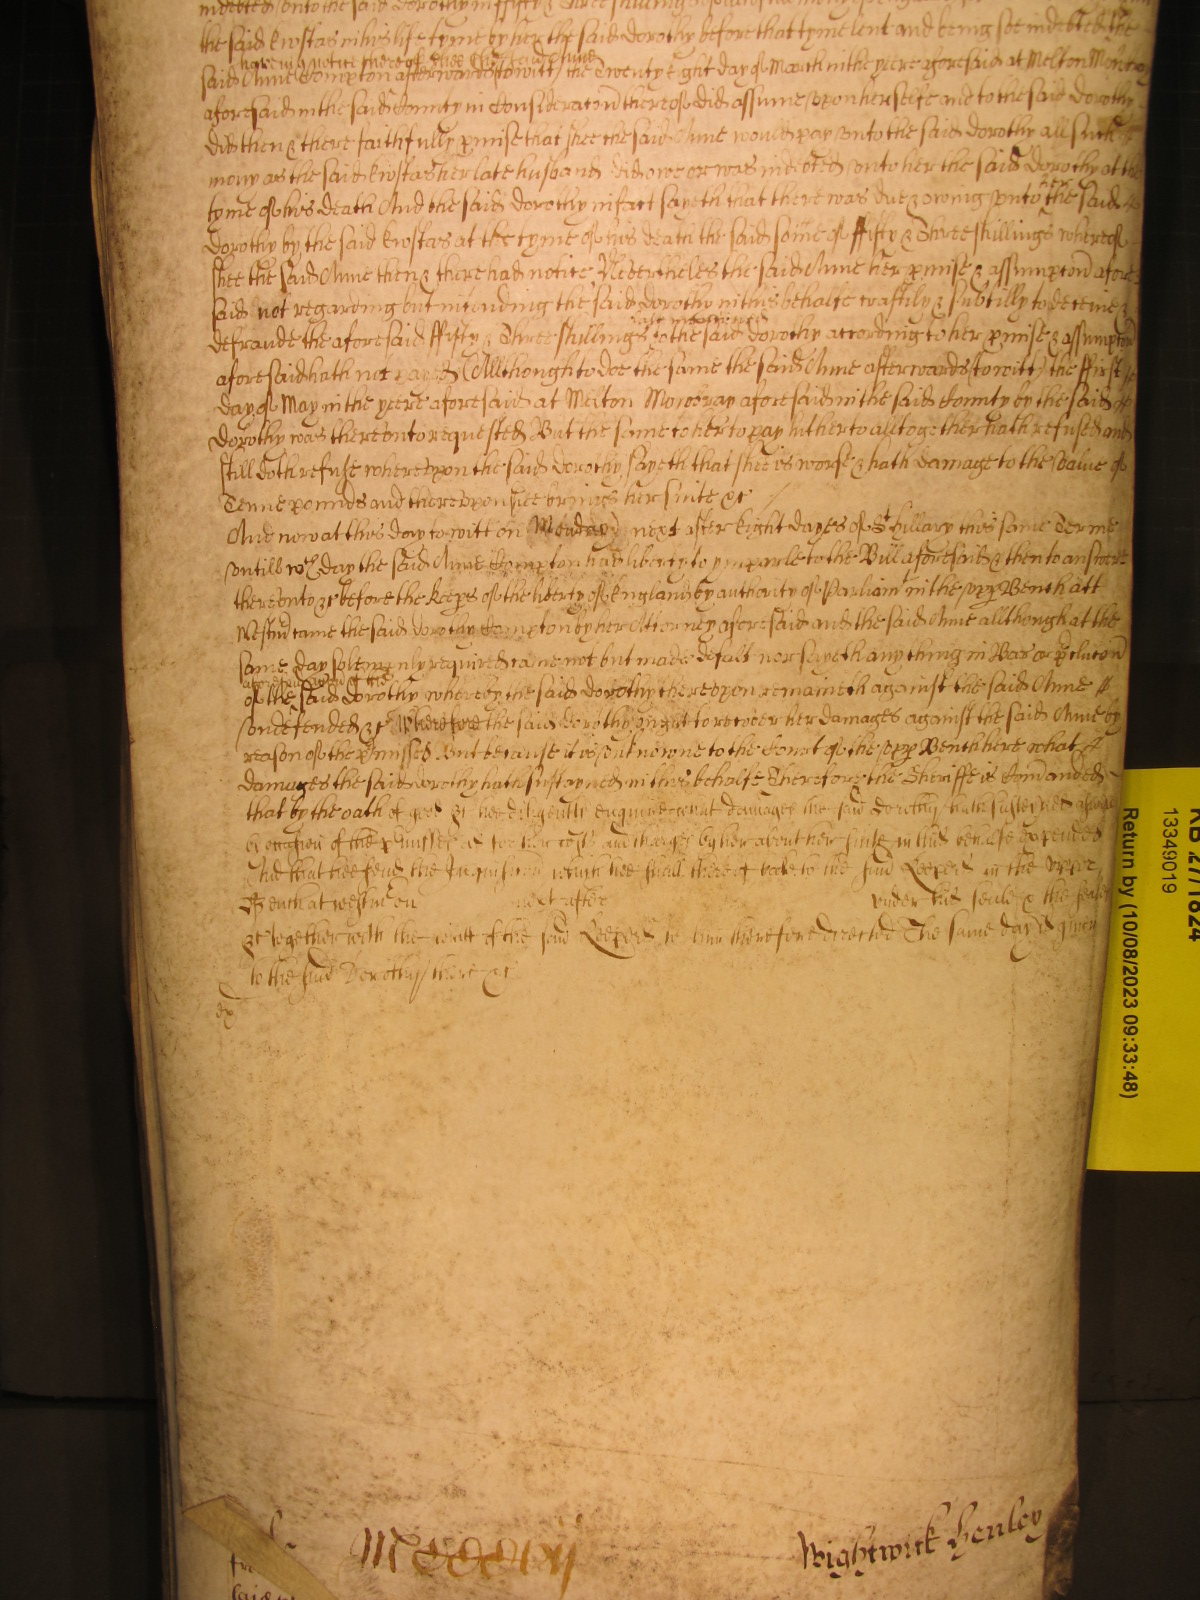 indebted unto the said Dorothy in ffifty & Three shillings
the said Ewstas in his life tyme by her the said Dorothy before that tyme lent and being soe indebted the
having notice thereof Shee the said Anne
said Anne Compton afterwards (to witt) the Twenty eight day of March in the yeere aforesaid at Melton Mowbray
aforesaid in the said County in Consideracon thereof did assume upon herselfe and to the said Dorothy
did then & there faithfully pmise that shee the said Anne would pay unto the said Dorothy all such
mony as the said Ewstas her late husband did owe or was indebted unto her the said Dorothy at the
tyme of his death And the said Dorothy in fact sayeth that there was due & owing unto the said
Dorothy by the said Ewstas at the tyme of his death the said some of ffifty & Three shillings whereof
shee the said Anne then & there had notice Nevertheles the said Anne her pmise & assumpcon afore
said not regarding but intending the said Dorothy in this behalfe craftily & subtilly to deceive &
defraude the aforesaid ffifty & Three shillings to the said Dorothy according to her pmise & assumpcon
aforesaid hath not payed Allthough to doe the same the said Anne afterwards (to witt) the ffirst
day of May in the yeere aforesaid at Melton Mowbray aforesaid in the said County by the said
Dorothy was thereunto requested But the same to her to pay hitherto alltogether hath refused and
still doth refuse whereupon the said Dorothy sayeth that shee is worse & hath damage to the value of
Tenne pounds and thereupon shee brings her suite &c
And now at this day to witt on Monday next after Eight dayes of St hillary this same Terme
untill wch day the said Anne Compton had liberty to ymparle to the Bill aforesaid & then to answere
thereunto &c before the Keeps of the liberty of England by authority of Parliamt in the upp Bench att
Westm came the said Dorothy Compton by her Attorney aforesaid and the said Anne allthough at the
same day solemnly required came not but made default nor sayeth any thing in Bar or pclucon
aforesaid accon of the
of the said Dorothy whereby the said Dorothy thereupon remaineth against the said Anne
undefended &c Wherefore the said Dorothy ought to recover her damages against the said Anne by
reason of the pmisses But because it is unknowne to the Court of the upp Bench here what
damages the said Dorothy hath sustayned in this behalfe Therefore the Sheriffe is Comanded
that by the oath of good &c hee diligently enquire what damages the said Dorothy hath susteyned aswell
by occasion of the pmisses as for her costs and charges by her about her suite in this behalfe expended
And that hee send the Inquisicon which hee shall thereof take to the said Keepers in the upper
Bench at Westm on next after under his seale & the seales
&c together with the writt of the said Keepers to him therefore directed The same day is given
to the said Dorothy there &c
ex
Mccccxij
Wightwick Henley
KB 27/1824
13349019
Return by (10/08/2023 09:33:48)